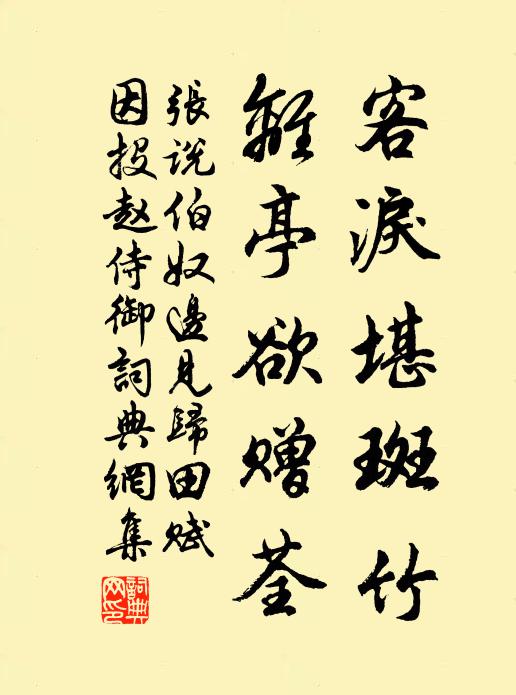 客淚堪斑竹
離亭欲赠荃
張説伯奴邊見歸田賦
因投赵侍御詞典網集
詞典網印